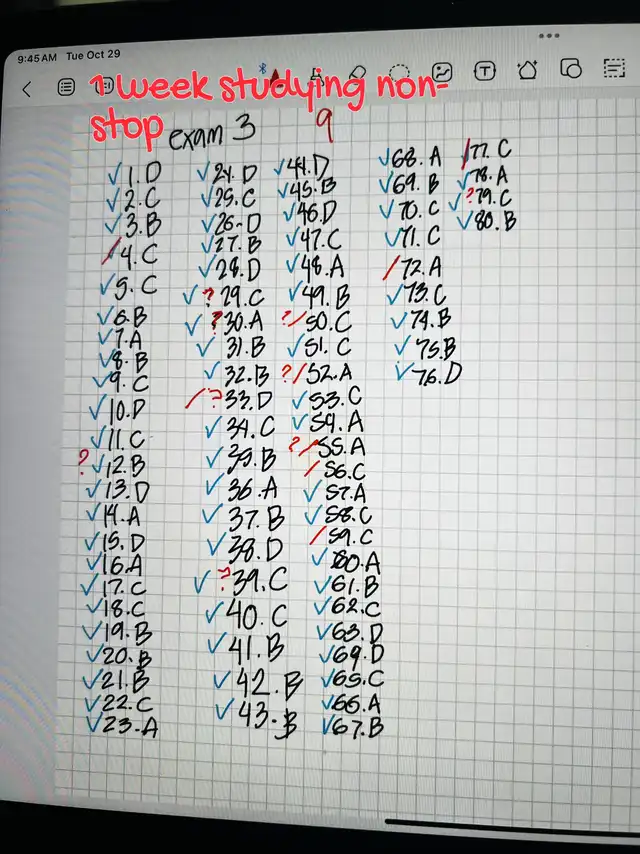 9:45 AM Tue Oct 29
1 week studying non-
stop
exam 3 9
1. D
2. C
3. B
4. C
5. C
6. B
7. A
8. B
9. C
10. D
11. C
? 12. B
13. D
14. A
15. D
16. A
17. C
18. C
19. B
20. B
21. B
22. C
23. A
24. D
25. C
26. D
27. B
28. D
? 29. C
? 30. A
31. B
32. B
? 33. D
34. C
35. B
36. A
37. B
38. D
? 39. C
40. C
41. B
42. B
43. B
44. D
45. B
46. D
47. C
48. A
49. B
? 50. C
51. C
? 52. A
53. C
54. A
? 55. A
56. C
57. A
58. C
59. C
60. A
61. B
62. C
63. D
64. D
65. C
66. A
67. B
68. A
69. B
70. C
71. C
72. A
73. C
74. B
75. B
76. D
77. C
78. A
? 79. C
80. B